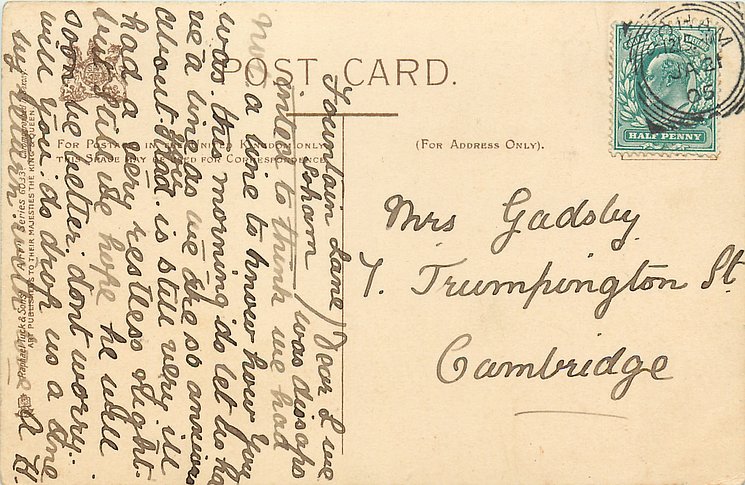 POST CARD.
For Postage in the United Kingdom only
this Space may be used for Correspondence
(For Address Only).
HALF PENNY
SOHAM
JA 31
05
Mrs Gadsby
7. Trumpington St
Cambridge
Fountain Lane
Soham
Dear L we
was disapo
inted to think we had
not a line to know how you
was this morning do let us ha
ve a line as we are so anxious
about you. Dad is still very ill
had a very restless night.
but Oh we hope he will
soon be better. dont worry.
will you. do drop us a line
by return. with
Raphael Tuck & Sons'
ART PUBLISHERS TO THEIR MAJESTIES THE KING & QUEEN.